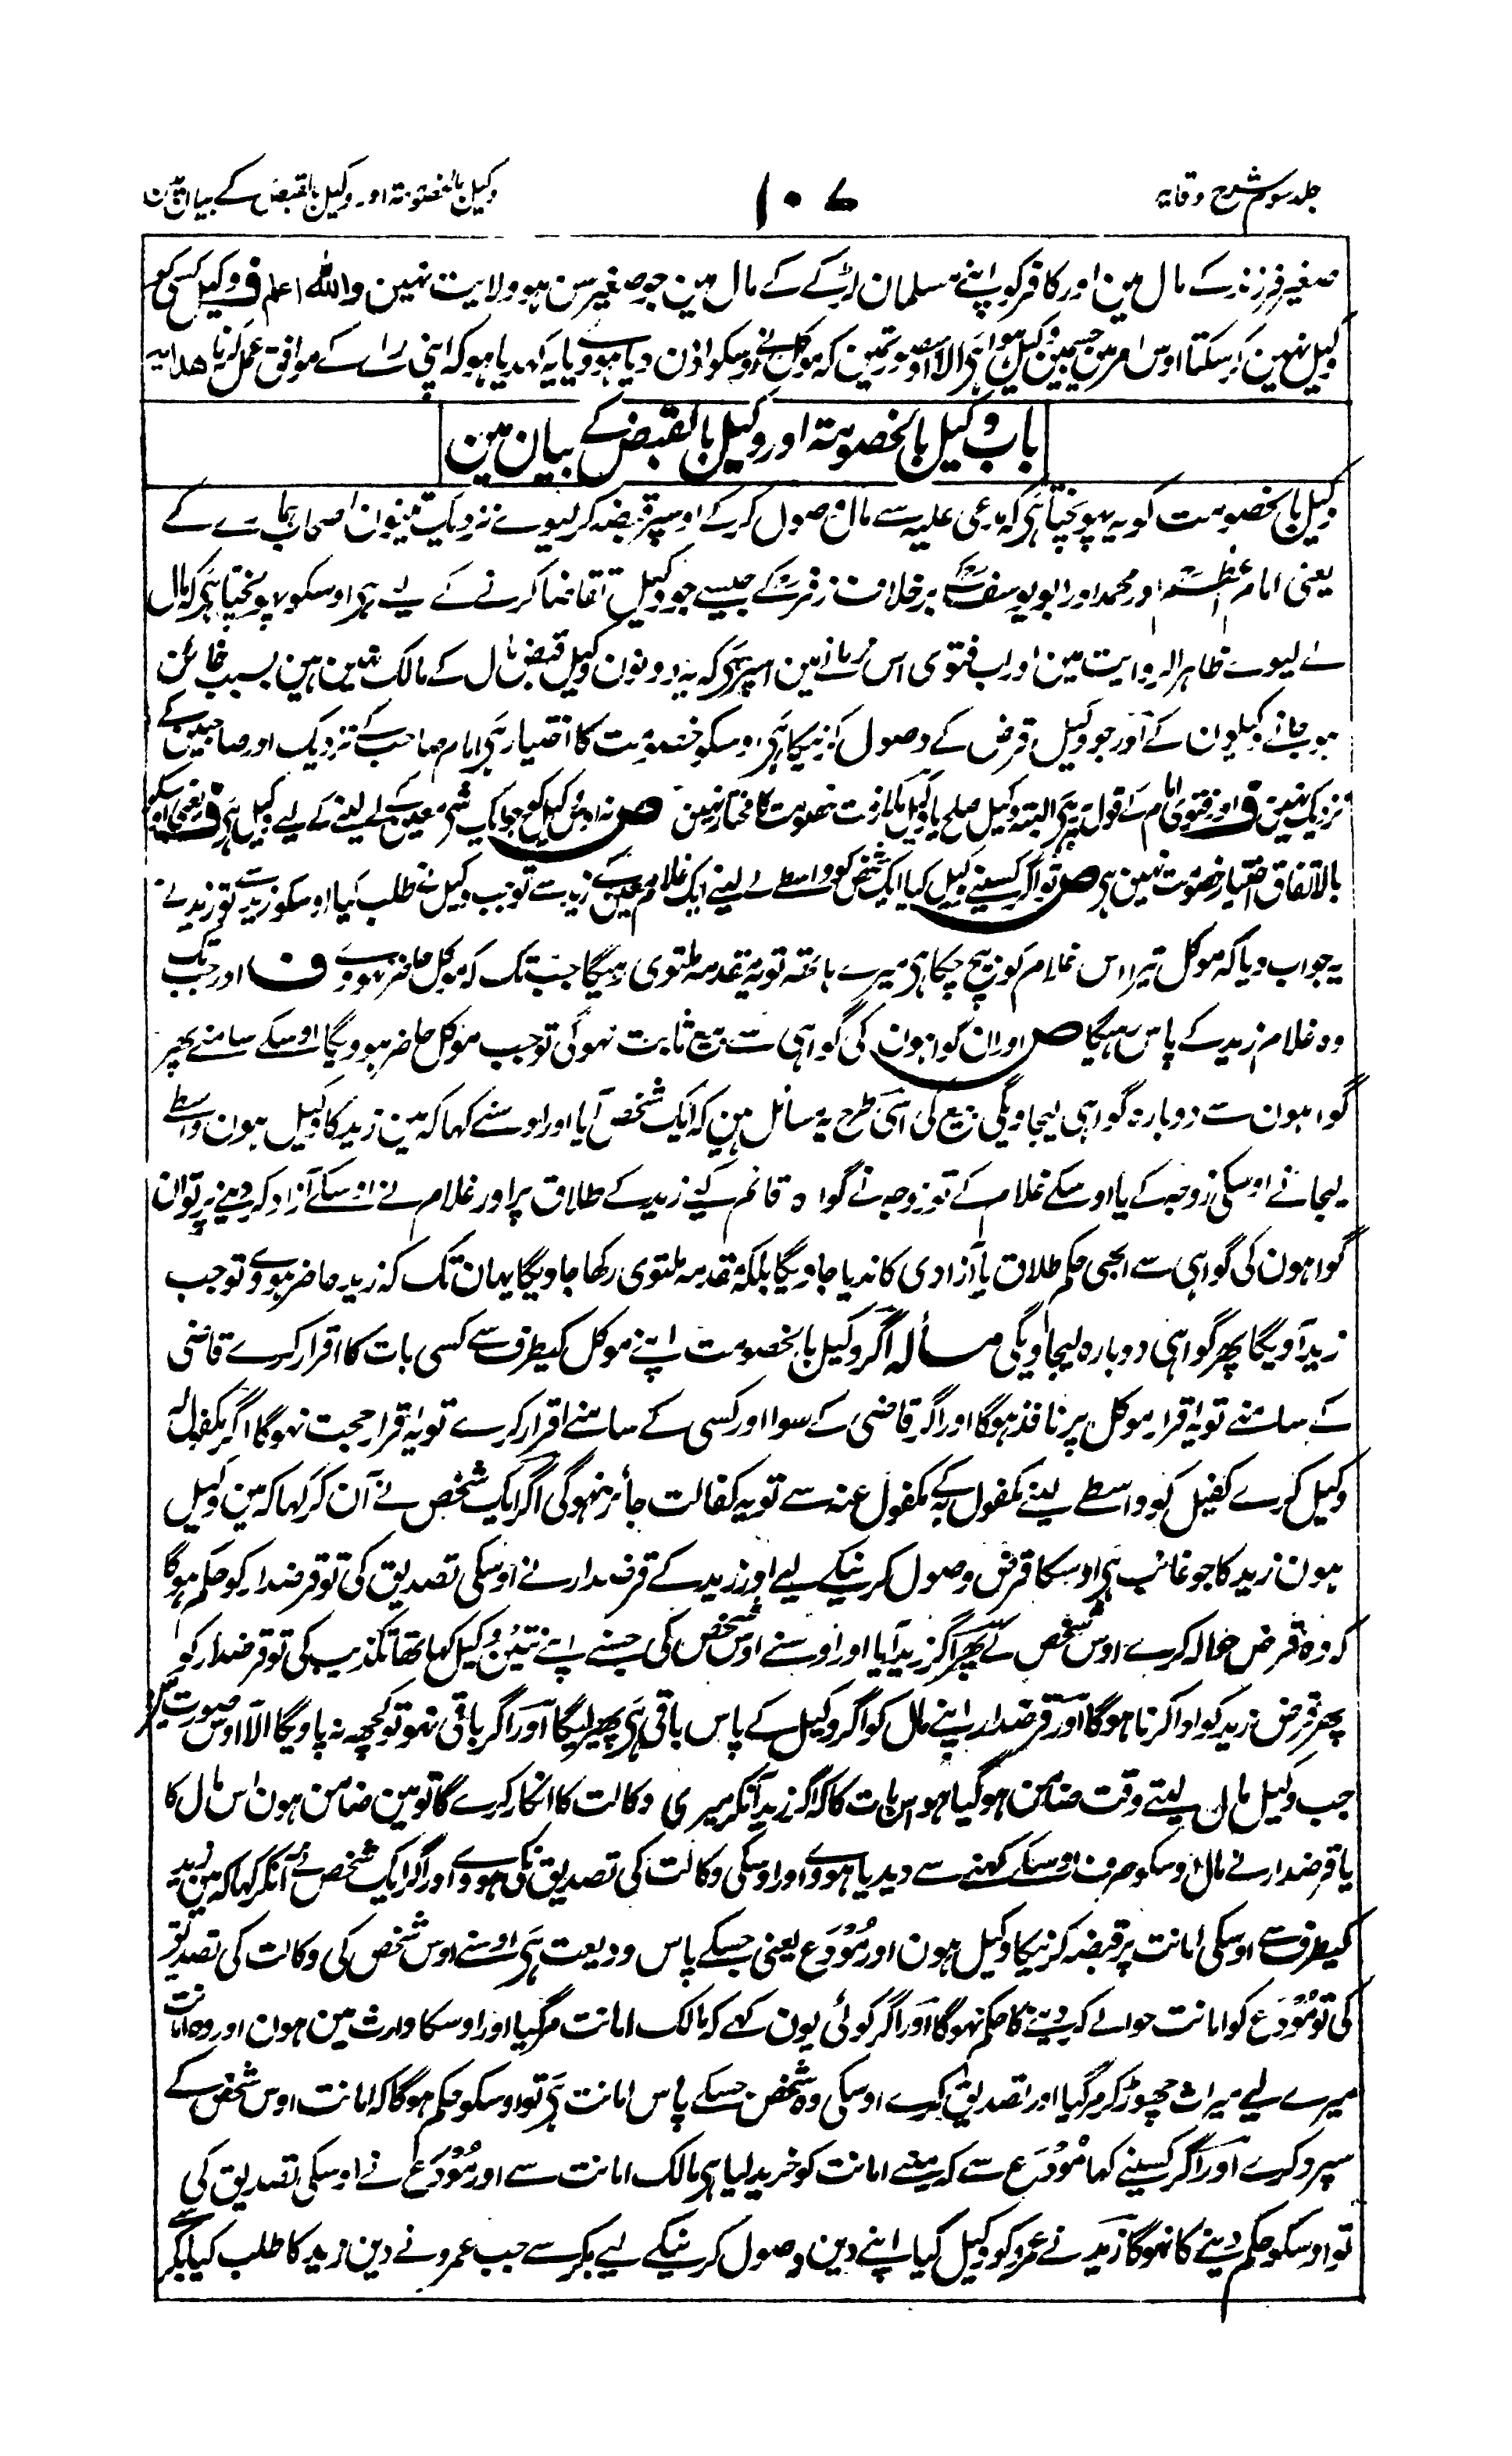 جلد سوم شرح وقایہ
۱۰۷
وکیل بالخصومتہ اور وکیل بالقبض کے بیان مین
صغیر فرزند کے مال مین اور کافر کو اپنے مسلمان لڑکے کے مال مین جو صغیر سن ہو ولایت نہین واللہ اعلم ف وکیل کسی کو
وکیل نہین کر سکتا اوس امر مین جسمین وکیل ہوا ہی الا اوس صورتمین کہ موکل نے اوسکو اذن دیا ہووے یا یہ کہدیا ہو کہ اپنی راے کے موافق عمل کرنا ھدایہ
باب وکیل بالخصومتہ اور وکیل بالقبض کے بیان مین
وکیل بالخصومت کو یہ پہونچتا ہی کہ مدعی علیہ سے مال وصول کر کے اوسپر قبضہ کر لیوے نزدیک تینون اصحاب ہمارے کے
یعنی امام اعظمؒ اور محمد اور ابو یوسفؒ کے برخلاف زفرؒ کے جیسے جو وکیل تقاضا کرنے کے لیے ہی اوسکو پہونچتا ہی کہ مال
لے لیوے ظاہر الروایت مین اور اب فتوی اس زمانے مین اسپر ہی کہ یہ دونون وکیل قبض مال کے مالک نہین ہین بسبب خائن
ہو جانے وکیلون کے اور جو وکیل قرض کے وصول کرنیکا ہی اوسکو خصومت کا اختیار ہی امام صاحب کے نزدیک اور صاحبین کے
نزدیک نہین ف اور فتوی امام کے قول پر ہی البتہ وکیل صلح یا وکیل ملازمت خصومت کا مختار نہین ص نہ اوس وکیل کو جو ایک شی معین کے لے لینے کے لیے وکیل ہی ف یعنی اوسکو
بالاتفاق اختیار خصومت نہین ہی ص تو اگر کسینے وکیل کیا ایک شخص کو واسطے لے لینے ایک غلام معین کے زید سے تو جب وکیل نے طلب کیا اوسکو زید سے تو زید نے
یہ جواب دیا کہ موکل تیرا اس غلام کو بیچ چکا ہی میرے ہاتھ تو یہ مقدمہ ملتوی رہیگا جب تک کہ موکل حاضر ہووے ف اور جب تک
وہ غلام زید کے پاس رہیگا ص اور ان گواہون کی گواہی سے بیع ثابت نہوگی تو جب موکل حاضر ہوویگا اوسکے سامنے پھر
گواہون سے دوبارہ گواہی لیجاویگی بیع کی اسی طرح یہ مسائل ہین کہ ایک شخص آیا اور اوسنے کہا کہ مین زید کا وکیل ہون واسطے
لیجانے اوسکی زوجہ کے یا اوسکے غلام کے تو زوجہ نے گواہ قائم کیے زید کے طلاق پر اور غلام نے اوسکے آزاد کر دینے پر تو ان
گواہون کی گواہی سے ابھی حکم طلاق یا آزادی کا ندیا جاویگا بلکہ مقدمہ ملتوی رکھا جاویگا یہان تک کہ زید حاضر ہووے تو جب
زید آویگا پھر گواہی دوبارہ لیجاویگی مسألہ اگر وکیل بالخصومت اپنے موکل کیطرف سے کسی بات کا اقرار کرے قاضی
کے سامنے تو یہ اقرار موکل پر نافذ ہوگا اور اگر قاضی کے سوا اور کسی کے سامنے اقرار کرے تو یہ اقرار حجت نہوگا اگر مکفول لہ
وکیل کرے کفیل کو واسطے لینے مکفول بہ کے مکفول عنہ سے تو یہ کفالت جائز نہوگی اگر ایک شخص نے آن کر کہا کہ مین وکیل
ہون زید کا جو غائب ہی اوسکا قرض وصول کرنیکے لیے اور زید کے قرضدار نے اوسکی تصدیق کی تو قرضدار کو حکم ہوگا
کہ وہ قرض حوالہ کرے اوس شخص کے پھر اگر زید آیا اور اوسنے اوس شخص کی جسنے اپنے تئین وکیل کہا تھا تکذیب کی تو قرضدار کو
پھر قرض زید کو ادا کرنا ہوگا اور قرضدار اپنے مال کو اگر وکیل کے پاس باقی ہی پھیر لیگا اور اگر باقی نہو تو کچھ نہ پاویگا الا اوس صورت مین کہ
جب وکیل مال لیتے وقت ضامن ہوگیا ہو اس بات کا کہ اگر زید آنکر میری وکالت کا انکار کرے گا تو مین ضامن ہون اس مال کا
یا قرضدار نے مال اوسکو صرف اوسکے کہنے سے دیدیا ہووے اور اوسکی وکالت کی تصدیق نکی ہووے اور اگر ایک شخص نے آنکر کہا کہ مین زید
کیطرف سے اوسکی امانت پر قبضہ کرنیکا وکیل ہون اور مُوْدَع یعنی جسکے پاس ودیعت ہی اوسنے اوس شخص کی وکالت کی تصدیق
کی تو مُوْدَع کو امانت حوالے کر دینے کا حکم نہوگا اور اگر کوئی یون کہے کہ مالک امانت مر گیا اور اوسکا وارث مین ہون اور وہ امانت
میرے لیے میراث چھوڑ کر مر گیا اور تصدیق کرے اوسکی وہ شخص جسکے پاس امانت ہی تو اوسکو حکم ہوگا کہ امانت اوس شخص کے
سپرد کرے اور اگر کسینے کہا مُوْدَع سے کہ مینے امانت کو خرید لیا ہی مالک امانت سے اور مُوْدَع نے اوسکی تصدیق کی
تو اوسکو حکم دینے کا نہوگا زید نے عمرو کو وکیل کیا اپنے دین وصول کرنیکے لیے بکر سے جب عمرو نے دین زید کا طلب کیا بکر سے